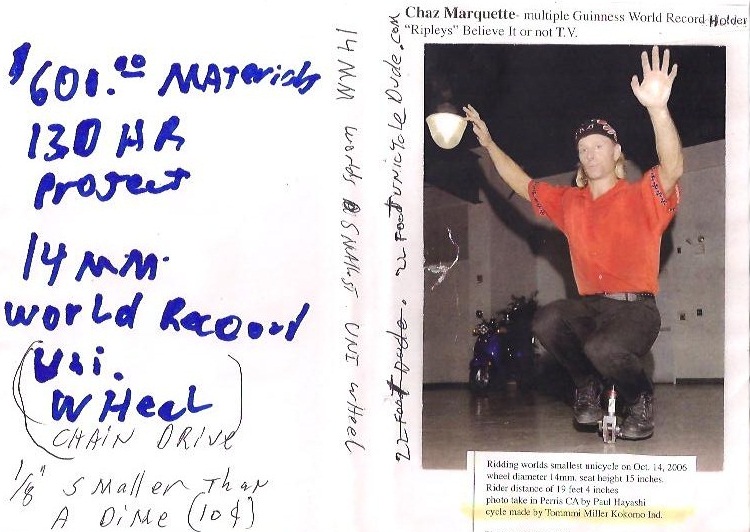 $601.00 MATerials
130 HR
Project
14 MM.
World Recoord
Uni.
WHeel
CHAIN DRIVE
1/8" SMaller THan
A DIMe (10¢)
14 MM worlds SMAllest UNI WHeel
22 Foot Dude. 22 Foot UNIcycle Dude.com
Chaz Marquette- multiple Guinness World Record Holder
"Ripleys" Believe It or not T.V.
Ridding worlds smallest unicycle on Oct. 14, 2006
wheel diameter 14mm. seat height 15 inches.
Rider distance of 19 feet 4 inches
photo take in Perris CA by Paul Hayashi
cycle made by Tommmi Miller Kokomo Ind.